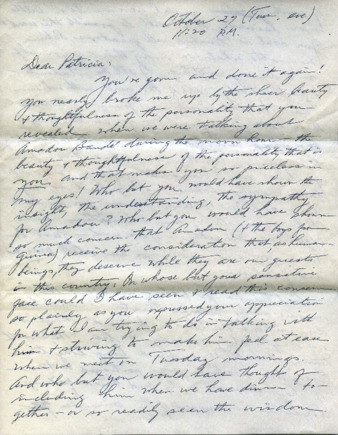 October 27 (Tues. eve)
11:20 P.M.
Dear Patricia:
You've gone and done it again!
You nearly broke me up by the sheer beauty
& thoughtfulness of the personality that you
revealed when we were talking about
Amadou during the noon hour — the
beauty & thoughtfulness of the personality that is
you and that makes you so priceless in
my eyes! Who but you would have shown the
insight, the understanding, the sympathy
for Amadou? Who but you would have shown
so much concern that Amadou (& the boys from
Guinea) receive the consideration that as human
beings, they deserve while they are our guests
in this country. On whose but your sensitive
face could I have seen & read this concern
so plainly, as you expressed your appreciation
for what I am trying to do in talking with
him & striving to make him feel at ease
when we meet on Tuesday mornings.
And who but you would have thought of
including him when we have dinner to-
gether — or so readily seen the wisdom